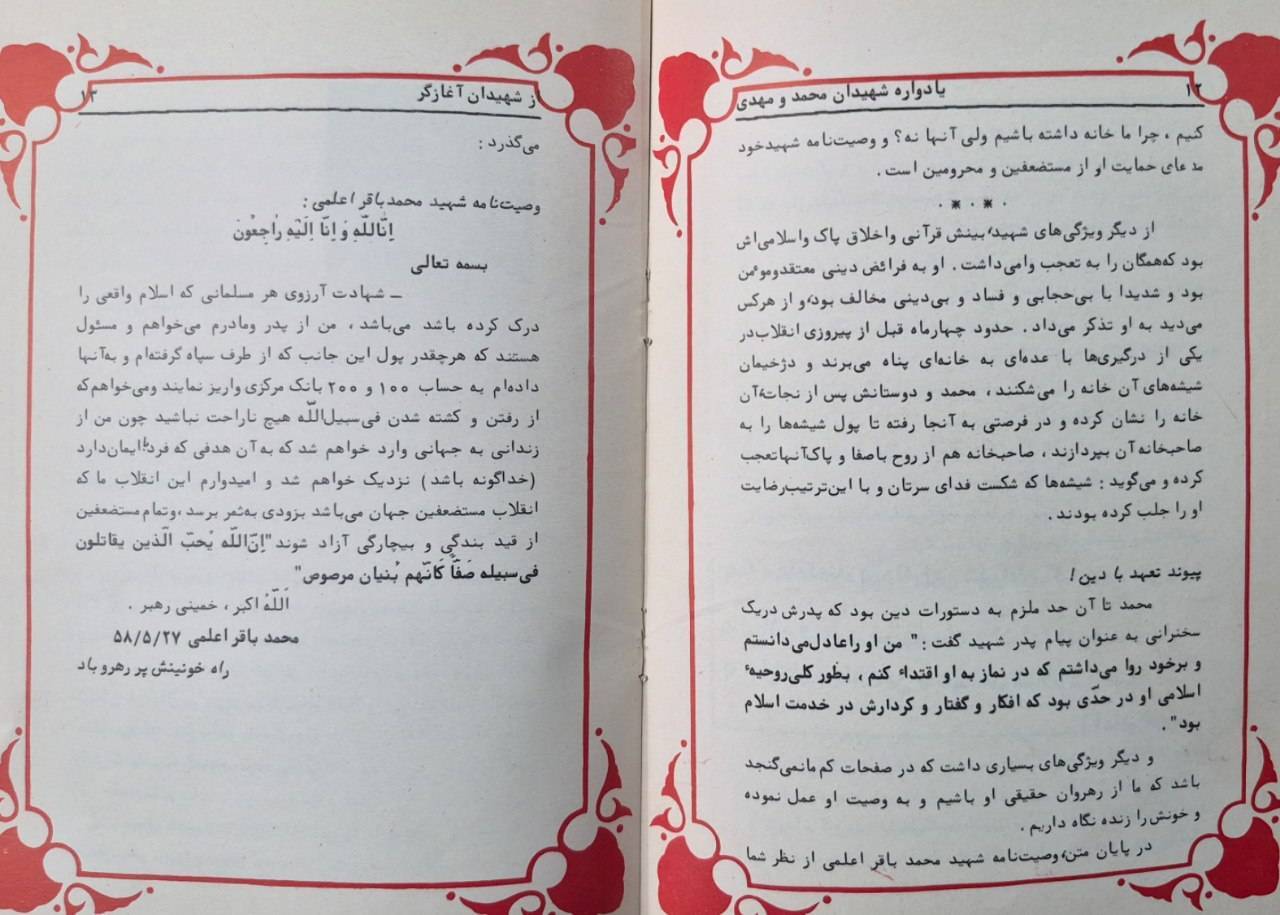 ۱۲ یادواره شهیدان محمد و مهدی
کنیم ، چرا ما خانه داشته باشیم ولی آنها نه؟ و وصیت‌نامه شهیدخود
مدعای حمایت او از مستضعفین و محرومین است .
۰ * ۰ * ۰
از دیگر ویژگی‌های شهید، بینش قرآنی واخلاق پاک واسلامی‌اش
بود که‌همگان را به تعجب وامی‌داشت . او به فرائض دینی معتقدومؤمن
بود و شدیدا با بی‌حجابی و فساد و بی‌دینی مخالف بود، و از هرکس
می‌دید به او تذکر می‌داد . حدود چهارماه قبل از پیروزی انقلاب‌در
یکی از درگیری‌ها با عده‌ای به خانه‌ای پناه می‌برند و دژخیمان
شیشه‌های آن خانه را می‌شکنند ، محمد و دوستانش پس از نجات، آن
خانه را نشان کرده و در فرصتی به آنجا رفته تا پول شیشه‌ها را به
صاحبخانه آن بپردازند ، صاحبخانه هم از روح باصفا و پاک‌آنهاتعجب
کرده و می‌گوید : شیشه‌ها که شکست فدای سرتان و با این‌ترتیب‌رضایت
او را جلب کرده بودند .
پیوند تعهد با دین!
محمد تا آن حد ملزم به دستورات دین بود که پدرش دریک
سخنرانی به عنوان پیام پدر شهید گفت : " من او راعادل‌می‌دانستم
و برخود روا می‌داشتم که در نماز به او اقتداء کنم ، بطور کلی‌روحیهٔ
اسلامی او در حدّی بود که افکار و گفتار و کردارش در خدمت اسلام
بود" .
و دیگر ویژگی‌های بسیاری داشت که در صفحات کم مانمی‌گنجد
باشد که ما از رهروان حقیقی او باشیم و به وصیت او عمل نموده
و خونش‌را زنده نگاه داریم .
در پایان متن، وصیت‌نامه شهید محمد باقر اعلمی از نظر شما
از شهیدان آغازگر ۱۳
می‌گذرد :
وصیت‌نامه شهید محمدباقر اعلمی :
اِنّالِلّهِ وَ اِنّا اِلَیْهِ رٰاجِعُونَ
بسمه تعالی
ــ شهادت آرزوی هر مسلمانی که اسلام واقعی را
درک کرده باشد می‌باشد ، من از پدر ومادرم می‌خواهم و مسئول
هستند که هرچقدر پول این جانب که از طرف سپاه گرفته‌ام و به‌آنها
داده‌ام به حساب ۱۰۰ و ۲۰۰ بانک مرکزی واریز نمایند ومی‌خواهم‌که
از رفتن و کشته شدن فی‌سبیل‌اللّه هیچ ناراحت نباشید چون من از
زندانی به جهانی وارد خواهم شد که به آن هدفی که فرد با ایمان‌دارد
(خداگونه باشد) نزدیک خواهم شد و امیدوارم این انقلاب ما که
انقلاب مستضعفین جهان می‌باشد بزودی به‌ثمر برسد ،وتمام مستضعفین
از قید بندگی و بیچارگی آزاد شوند "اِنّ‌اللّه یُحبّ الّذین یقاتلون
فی‌سبیله صَفّاً کَانّهم بُنیان مرصوص"
اَللّهُ اکبر ، خمینی رهبر .
محمد باقر اعلمی ۵۸/۵/۲۷
راه خونینش پر رهرو باد